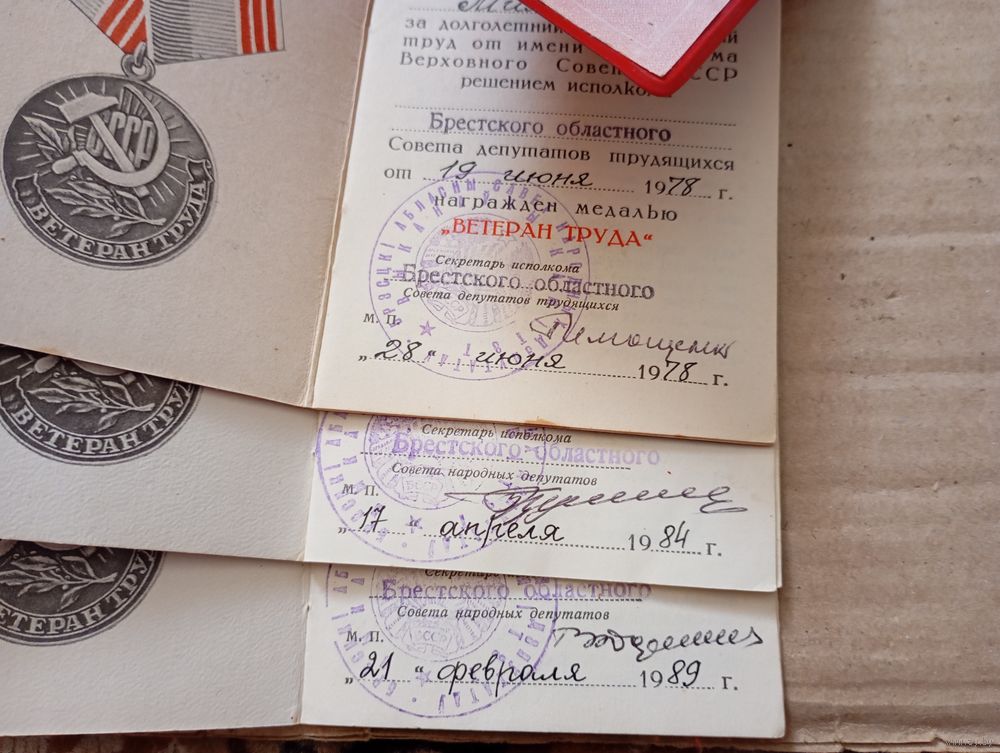 СССР
ВЕТЕРАН ТРУДА
за долголетний
труд от имени
Верховного СССР
решением исполкома
Брестского областного
Совета депутатов трудящихся
от 19 июня 1978 г.
награжден медалью
„ВЕТЕРАН ТРУДА“
Секретарь исполкома
Брестского областного
Совета депутатов трудящихся
М. П.
Тимощенко
„28“ июня 1978 г.
ВЕТЕРАН ТРУДА
Секретарь исполкома
Брестского областного
Совета народных депутатов
М. П.
„17“ апреля 1984 г.
ВЕТЕРАН ТРУДА
Секретарь
Брестского областного
Совета народных депутатов
М. П.
„21“ февраля 1989 г.